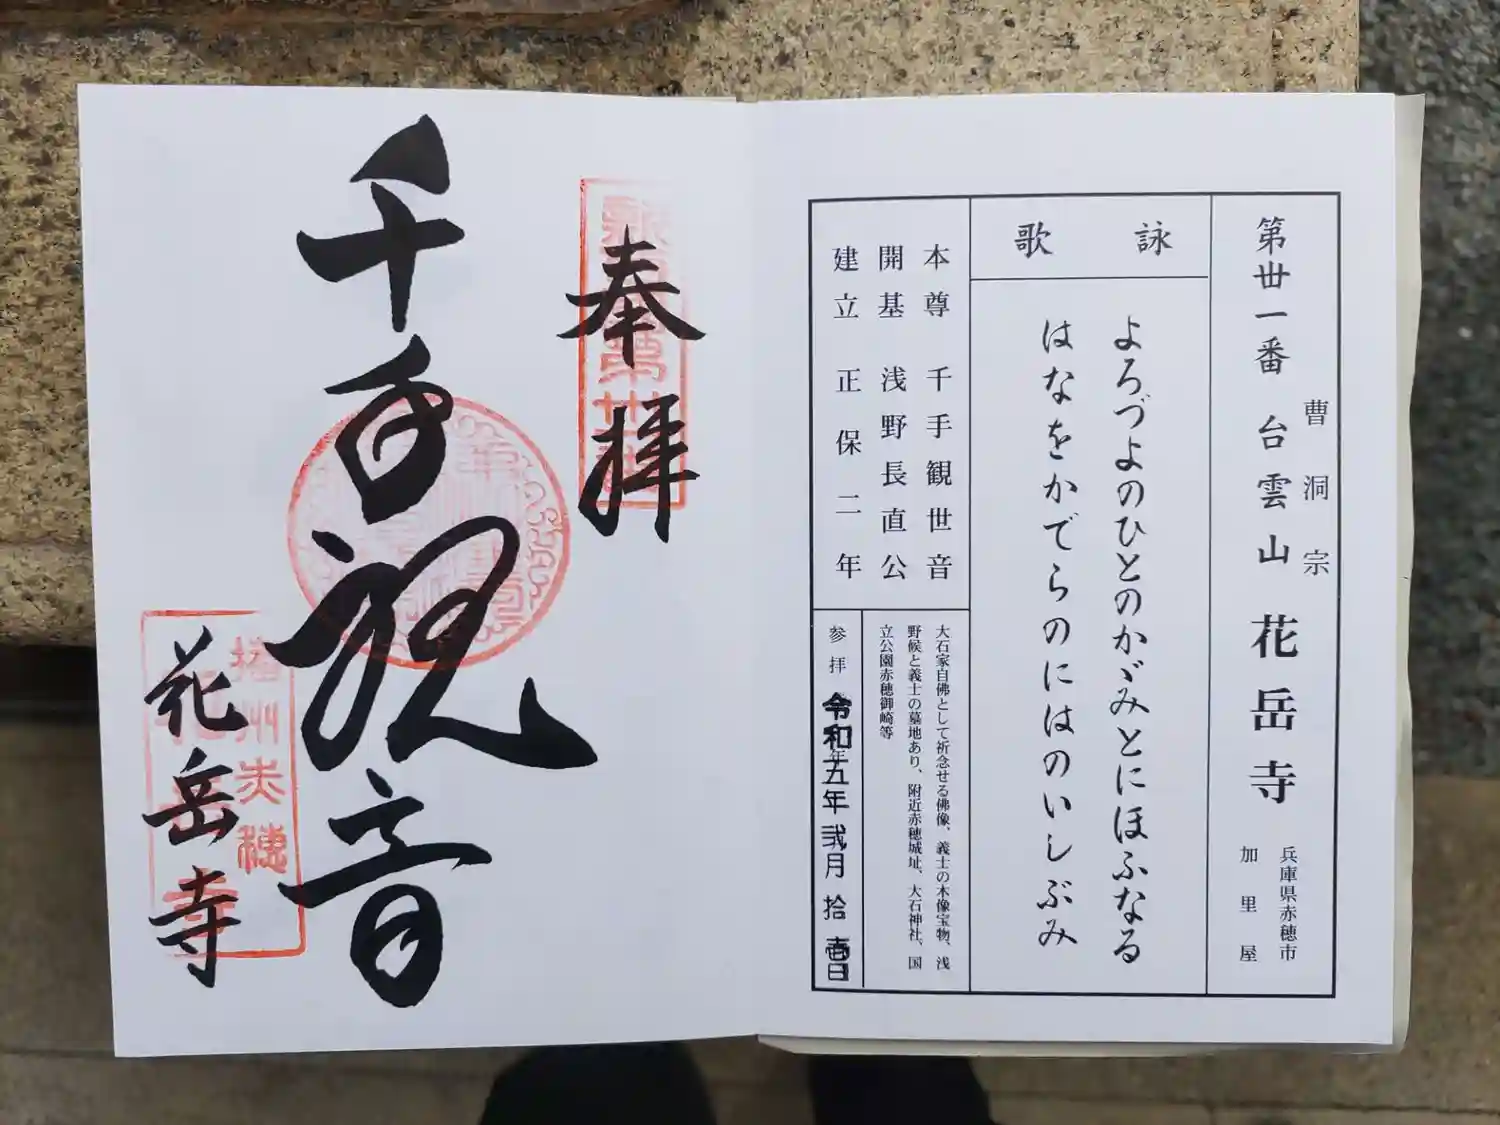 曹洞宗
第丗一番 台雲山 花岳寺
兵庫県赤穂市
加里屋
詠歌
よろづよのひとのかゞみとにほふなる
はなをかでらのにはのいしぶみ
本尊 千手観世音
開基 浅野長直公
建立 正保二年
大石家自佛として祈念せる佛像、義士の木像宝物、浅
野候と義士の墓地あり、附近赤穂城址、大石神社、国
立公園赤穂御崎等
参拝 令和五年弐月拾壱日
奉拝
千手観音
花岳寺
播州赤穂